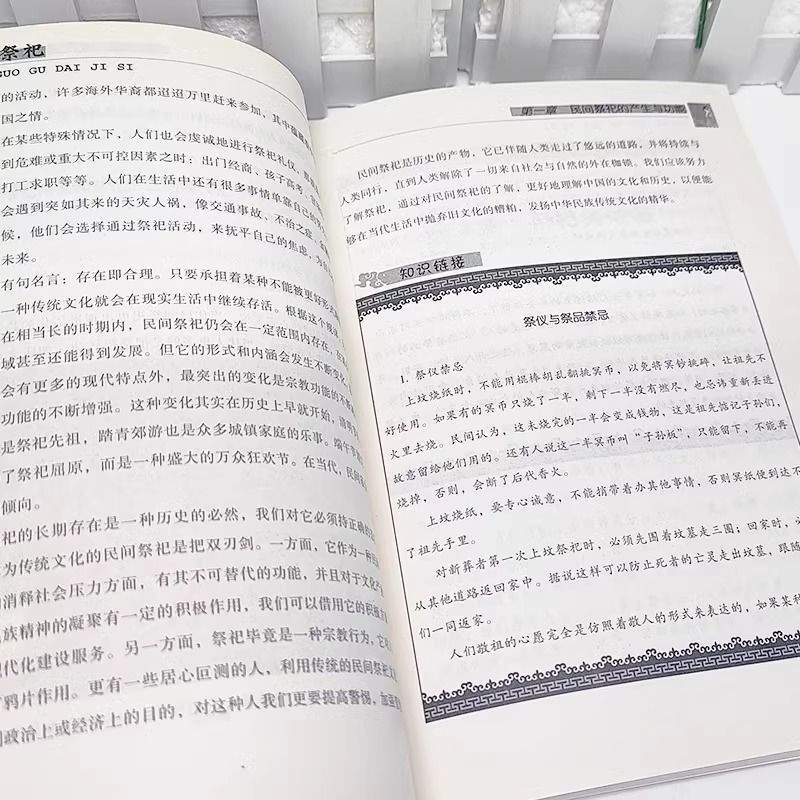 祭祀
GUO GU DAI JI SI
的活动，许多海外华裔都迢迢万里赶来参加，其中蕴藏
国之情。
在某些特殊情况下，人们也会虔诚地进行祭祀礼仪，
到危难或重大不可控因素之时：出门经商、孩子高考、
打工求职等等。人们在生活中还有很多事情单靠自己的
会遇到突如其来的天灾人祸，像交通事故、不治之症、
候，他们会选择通过祭祀活动，来抚平自己的焦虑，为
未来。
有句名言：存在即合理。只要承担着某种不能被更好形式
一种传统文化就会在现实生活中继续存活。根据这个
在相当长的时期内，民间祭祀仍会在一定范围内存在，
域甚至还能得到发展。但它的形式和内涵会发生不断变化，
会有更多的现代特点外，最突出的变化是宗教功能的不断
功能的不断增强。这种变化其实在历史上早就开始，清明
是祭祀先祖，踏青郊游也是众多城镇家庭的乐事。端午
了祭祀屈原，而是一种盛大的万众狂欢节。在当代，民间
倾向。
祀的长期存在是一种历史的必然，我们对它必须持正确的
为传统文化的民间祭祀是把双刃剑。一方面，它作为一种
消释社会压力方面，有其不可替代的功能，并且对于文化
民族精神的凝聚有一定的积极作用，我们可以借用它的积极
现代化建设服务。另一方面，祭祀毕竟是一种宗教行为，它
鸦片作用。更有一些居心叵测的人，利用传统的民间祭祀
政治上或经济上的目的，对这种人我们更要提高警惕，加
第一章 民间祭祀的产生与功能
民间祭祀是历史的产物，它已伴随人类走过了悠远的道路，并将持续与
人类同行，直到人类解除了一切来自社会与自然的外在枷锁。我们应该努力
了解祭祀，通过对民间祭祀的了解，更好地理解中国的文化和历史，以便能
够在当代生活中抛弃旧文化的糟粕，发扬中华民族传统文化的精华。
知识链接
祭仪与祭品禁忌
1. 祭仪禁忌
上坟烧纸时，不能用棍捧胡乱翻挑冥币，以免将冥钞挑碎，让祖先不
好使用。如果有的冥币只烧了一半，剩下一半没有燃尽，也忌讳重新丢进
火里去烧。民间认为，这未烧完的一半会变成钱物，这是祖先惦记子孙们，
故意留给他们用的。还有人说这一半冥币叫“子孙板”，只能留下，不能再
烧掉，否则，会断了后代香火。
上坟烧纸，要专心诚意，不能捎带着办其他事情，否则冥纸便到达不
了祖先手里。
对新葬者第一次上坟祭祀时，必须先围着坟墓走三圈；回家时，必
从其他道路返回家中。据说这样可以防止死者的亡灵走出坟墓，跟随
们一同返家。
人们敬祖的心愿完全是仿照着敬人的形式来表达的，如果某种